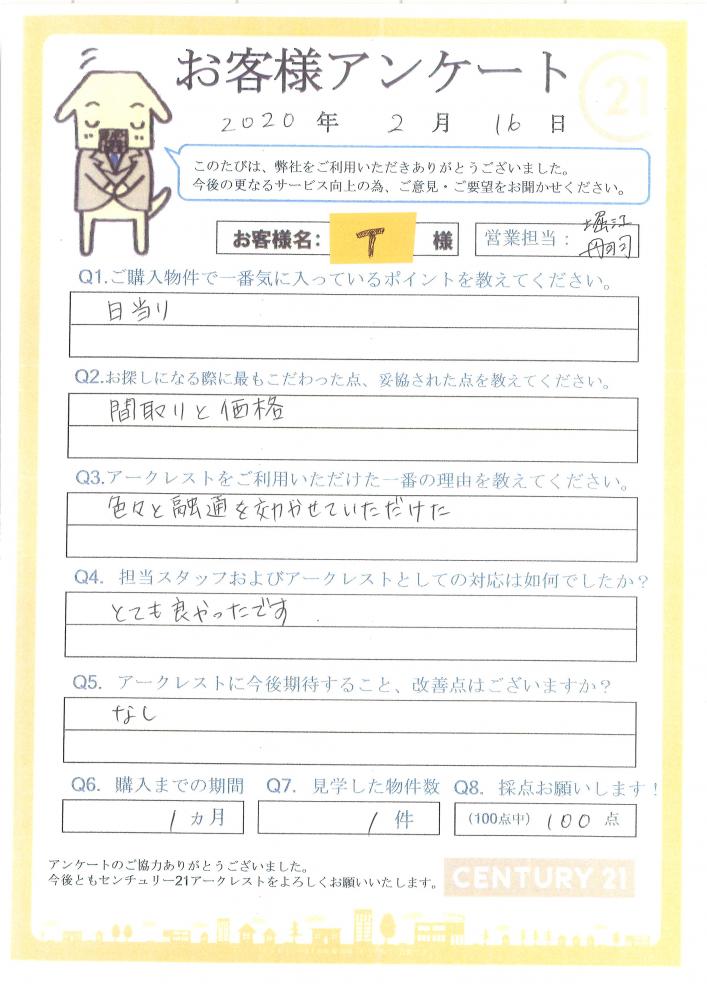 お客様アンケート
21
2020 年 2 月 16 日
このたびは、弊社をご利用いただきありがとうございました。
今後の更なるサービス向上の為、ご意見・ご要望をお聞かせください。
お客様名: T 様
営業担当: 堀江
丹羽司
Q1.ご購入物件で一番気に入っているポイントを教えてください。
日当り
Q2.お探しになる際に最もこだわった点、妥協された点を教えてください。
間取りと価格
Q3.アークレストをご利用いただけた一番の理由を教えてください。
色々と融通を効かせていただけた
Q4. 担当スタッフおよびアークレストとしての対応は如何でしたか?
とても良かったです
Q5. アークレストに今後期待すること、改善点はございますか?
なし
Q6. 購入までの期間 Q7. 見学した物件数 Q8. 採点お願いします!
1 ヵ月 1 件 (100点中) 100 点
アンケートのご協力ありがとうございました。
今後ともセンチュリー21アークレストをよろしくお願いいたします。
CENTURY 21